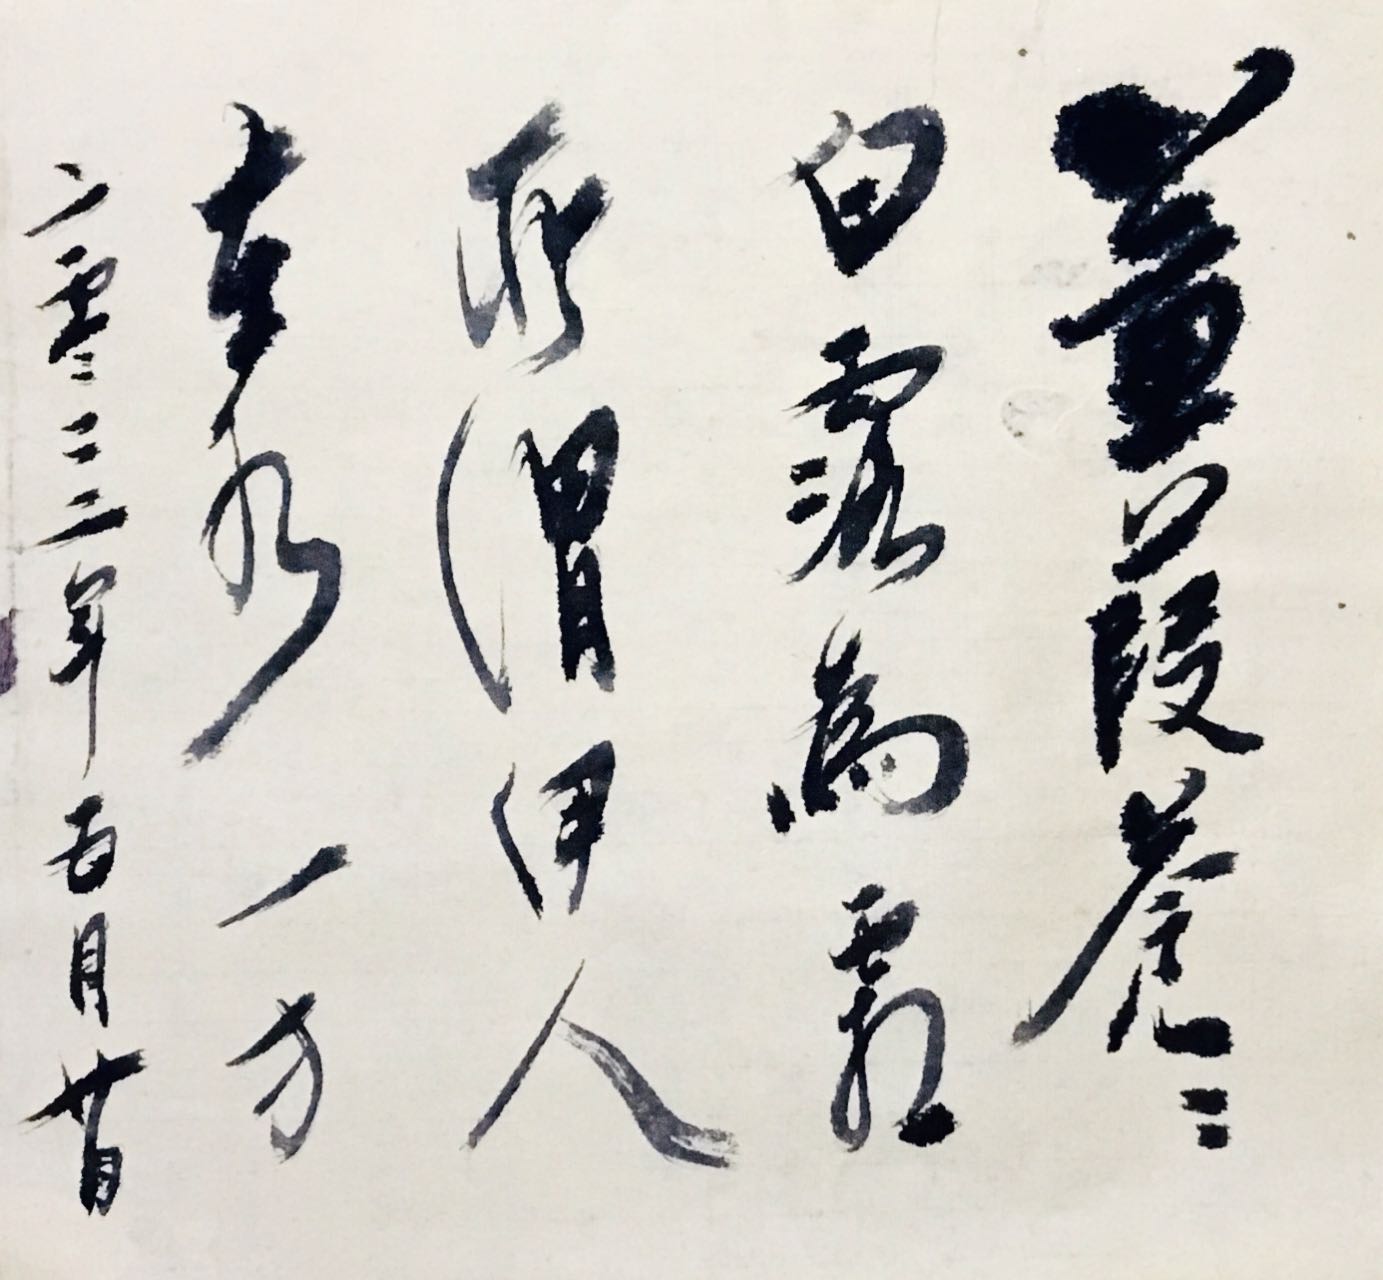 蒹葭蒼〻
白露為霜
所謂伊人
在水一方
二零二二年五月廿日